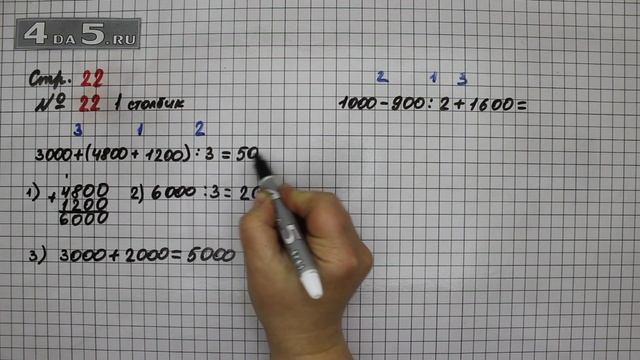 4DA5.RU
Стр. 22
№ 22 1 столбик
3 1 2
3000+(4800+1200):3=50
1) +4800
1200
6000
2) 6000:3=20
3) 3000+2000=5000
2 1 3
1000-900:2+1600=